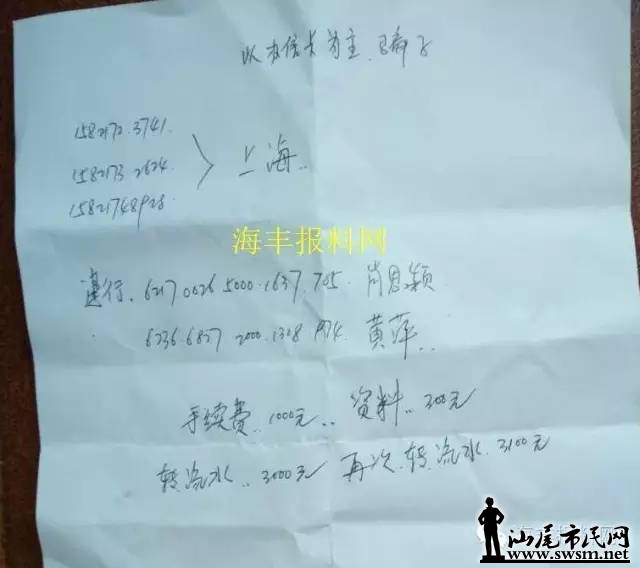 以办信卡为主、骗子
1582172.3741.
158273 2624.
上海..
海丰报料网
建行. 6217 0026 5000.1637.705. 肖思颖
6236.6827 2000.1308 黄萍..
手续费..1000元.. 资料..300元
转流水..3000元 再次.转.流水.3100元
汕尾市民网
www.swsm.net